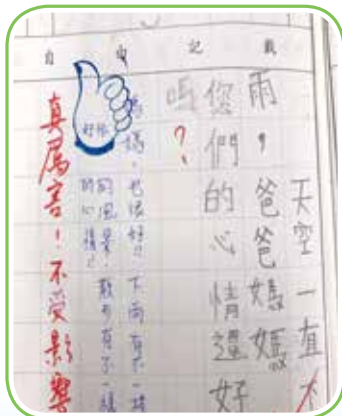 自由記載
天空一直
雨，爸爸媽媽
您們的心情還好
嗎？
媽媽：也很好!! 下雨有不一樣
的風景，散步有不一樣
的心情!!
真厲害！不受影響